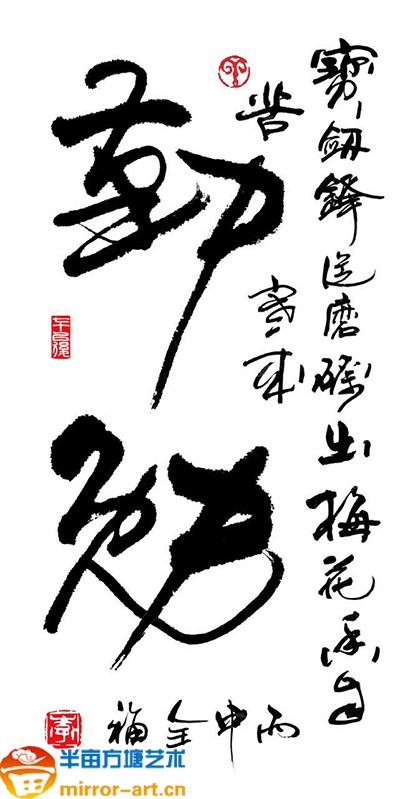 勤勉
寶劍鋒從磨礪出梅花香自
苦
寒來
丙申全福
半亩方塘艺术
mirror-art.cn